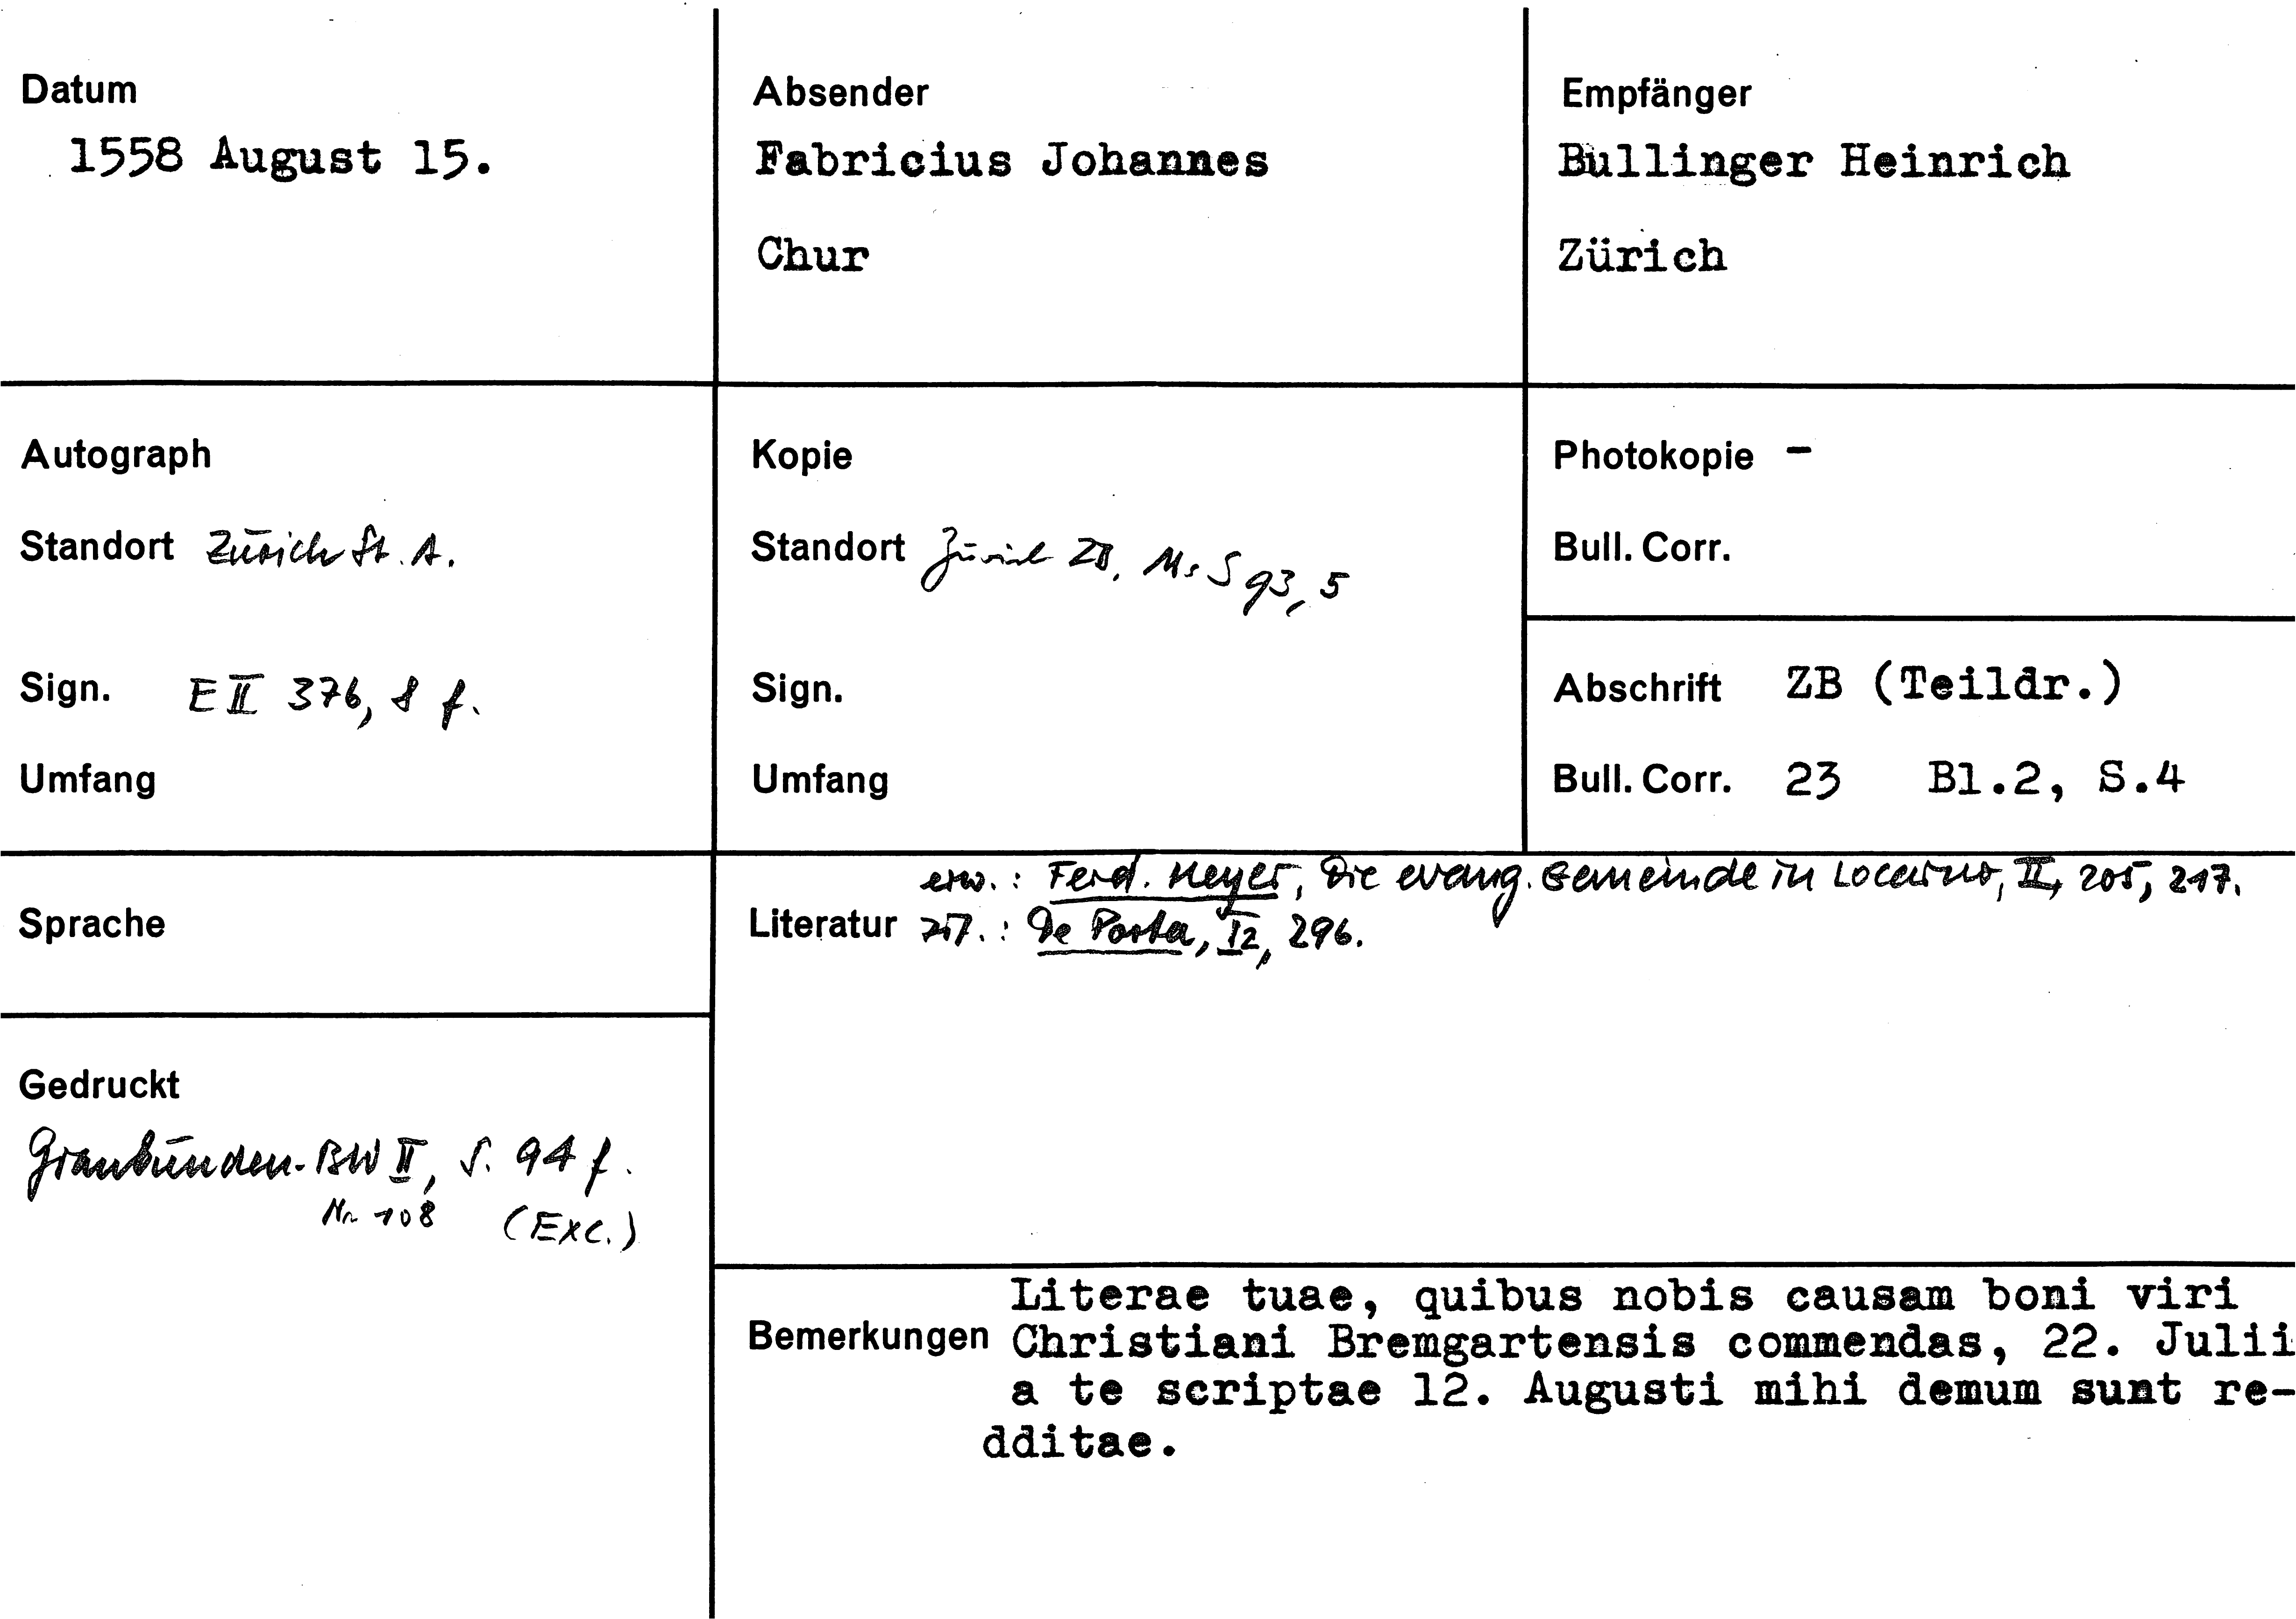 Datum
1558 August 15.
Absender
Fabricius Johannes
Chur
Empfänger
Bullinger Heinrich
Zürich
Autograph
Standort Zürich St. A.
Sign. E II 376, 8 f.
Umfang
Kopie
Standort Zürich ZB, Ms S 93, 5
Sign.
Umfang
Photokopie –
Bull. Corr.
Abschrift ZB (Teildr.)
Bull. Corr. 23 Bl.2, S.4
Sprache
erw.: Ferd. Meyer, Die evang. Gemeinde in Locarno, II, 205, 217.
Literatur zit.: De Porta, I2, 296.
Gedruckt
Graubünden-BW II, S. 94 f.
Nr 108 (Exc.)
Literae tuae, quibus nobis causam boni viri
Bemerkungen Christiani Bremgartensis commendas, 22. Julii
a te scriptae 12. Augusti mihi demum sunt re-
dditae.